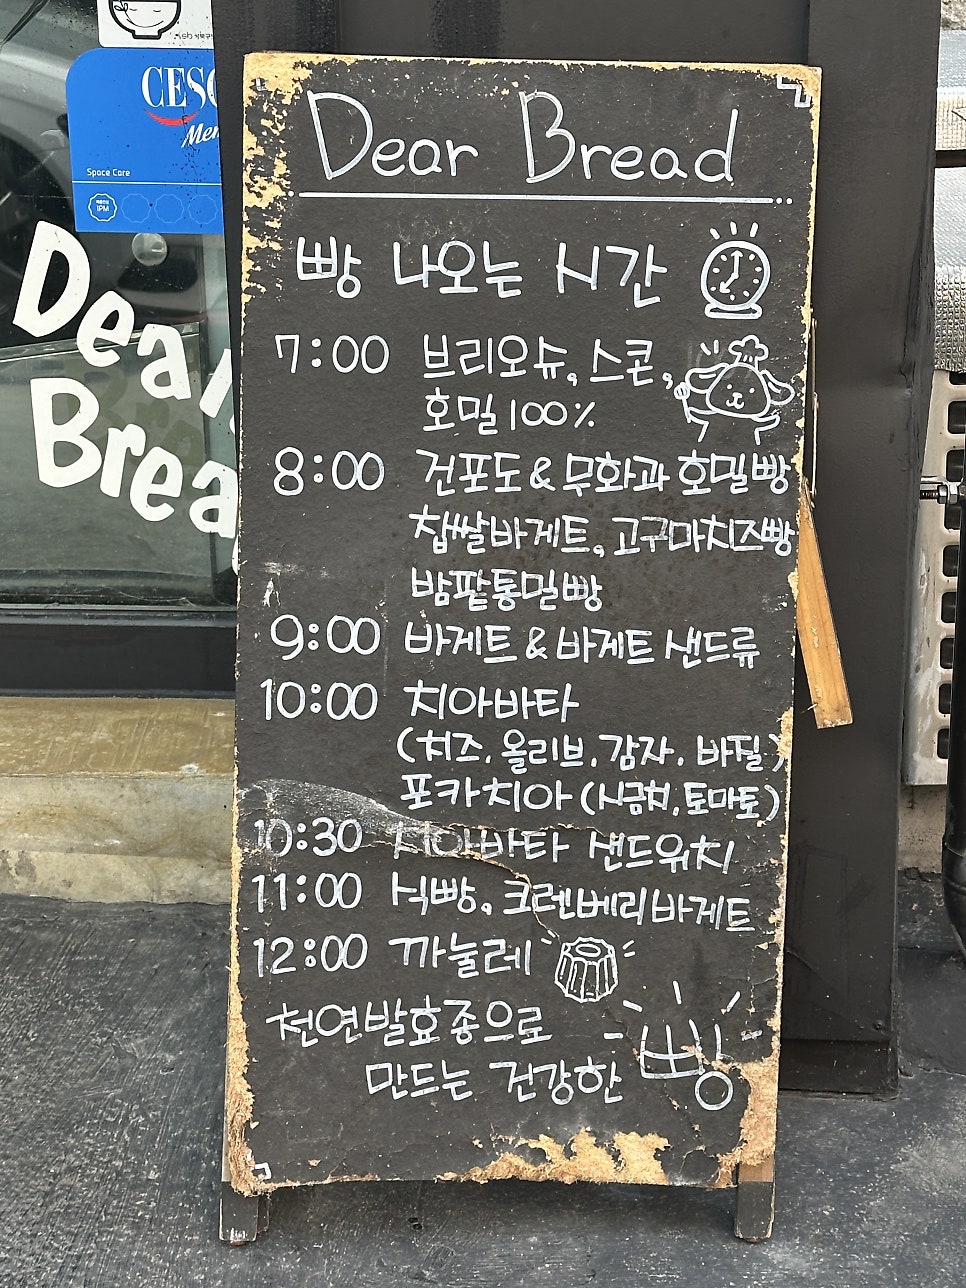 CESC
Mem
Space Care
IPM
Dear
Brea
Dear Bread
빵 나오는 시간
7:00 브리오슈, 스콘,
호밀 100%
8:00 건포도 & 무화과 호밀빵
찹쌀바게트, 고구마치즈빵
밤팥통밀빵
9:00 바게트 & 바게트 샌드류
10:00 치아바타
(치즈, 올리브, 감자, 바질)
포카치아 (시금치, 토마토)
10:30 치아바타 샌드위치
11:00 식빵, 크렌베리바게트
12:00 까눌레
천연발효종으로
만드는 건강한 빵